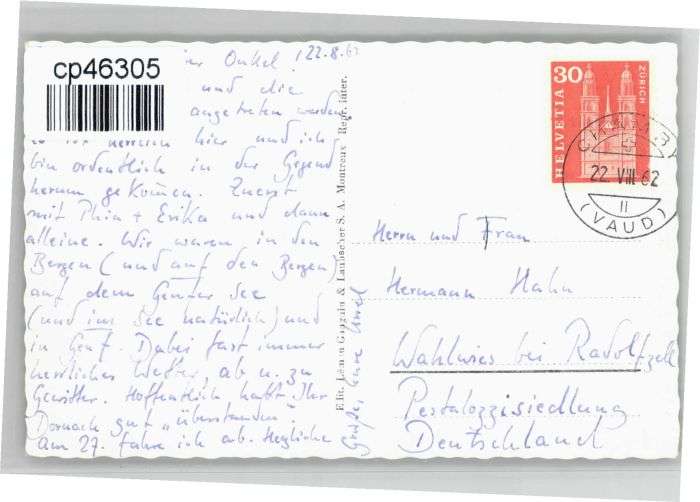 cp46305
Onkel! 22.8.62
und die
angetreten werden
herrlich hier und ich
bin ordentlich in der Gegend
herum gekommen. Zuerst
mit Phia + Erika und dann
alleine. Wir waren in den
Bergen (und auf den Bergen)
auf dem Genfer See
(und im See natürlich) und
in Genf. Dabei fast immer
herrliches Wetter, ab u. zu
Gewitter. Hoffentlich habt Ihr
Dornach gut "überstanden".
Am 27. fahre ich ab. Herzliche
Grüße, Eure Ursel
Edit. Laubscher S. A. Montreux - Repr. inter.
30
HELVETIA
ZÜRICH
22 VIII 62
11
(VAUD)
Herrn und Frau
Hermann Hahn
Wahlwies bei Radolfzell
Pestalozzisiedlung
Deutschland